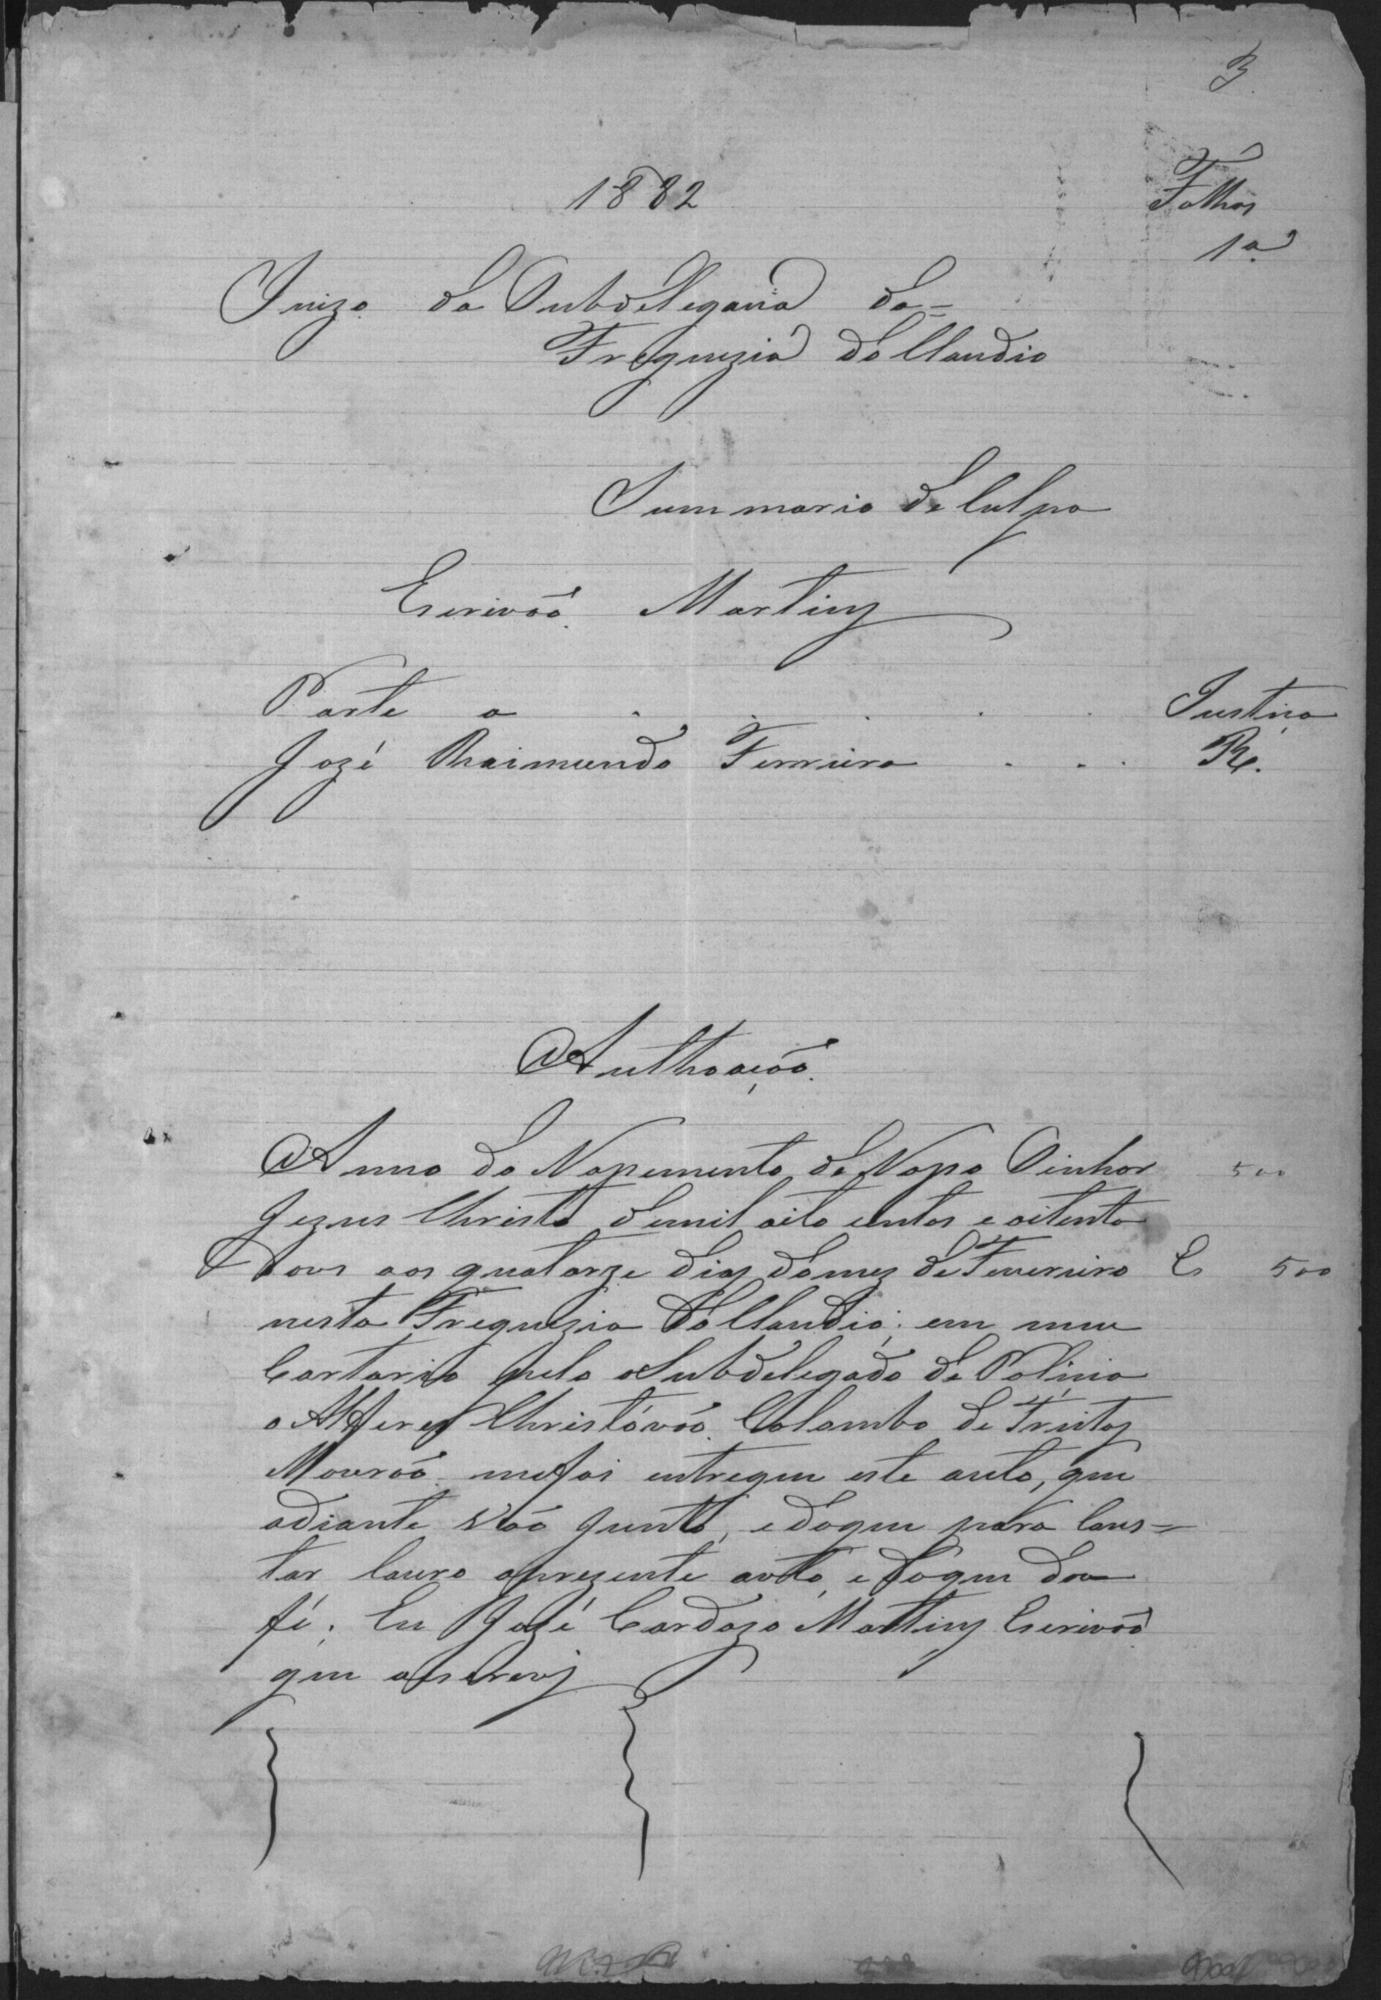 3
1882
Folhas
1a
Juizo da Subdelegacia da=
Freguezia do Claudio
Summario de Culpa
Escrivão Martins
Parte a . . . . . Justiça
José Raimundo Ferreira . . . Ré.
Authoação.
Anno do Nascimento de Nosso Sinhor 500
Jezus Christo de mil oito centos e oitenta
dous aos quatorze dias do mez de Fevereiro E 500
nesta Freguezia do Claudio; em meu
Cartorio pelo Subdelegado de Policia
o Alferes Christóvão Colombo de Freitas
Mourão me foi entregue este auto, que
adiante vão junto, e do que para Cons=
tar lavro a prezente auto, e do que dou
fé. Eu José Cardozo Martins Escrivão
que o escrevi